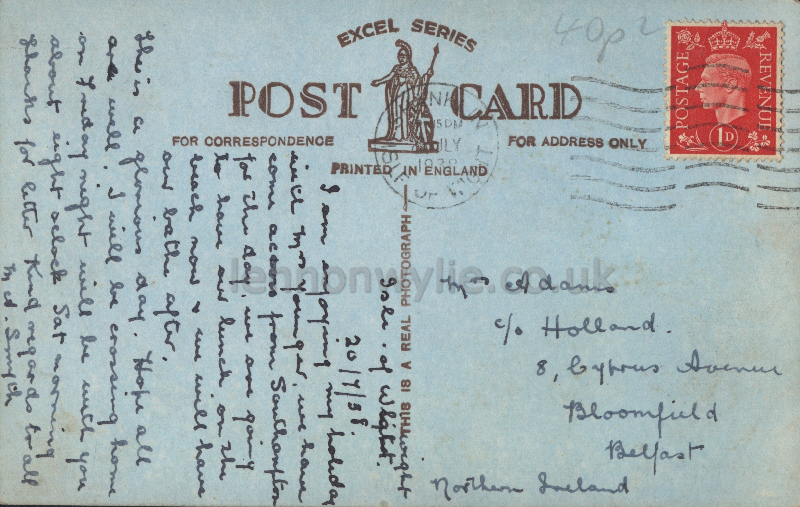 EXCEL SERIES
POST CARD
FOR CORRESPONDENCE
FOR ADDRESS ONLY
PRINTED IN ENGLAND
THIS IS A REAL PHOTOGRAPH
40p
POSTAGE
REVENUE
1D
JULY
1938
OF WIGHT
Isle. of Wight.
20/7/38.
I am enjoying my holiday
with Mrs Younger, we have
come across from Southampton
for the day, we are going
to have our lunch on the
beach now & we will have
our bathe after.
This is a glorious day. Hope all
are well. I will be crossing home
on Friday night will be with you
about eight oclock Sat morning
Thanks for letter Kind regards to all
M A. Smyth
Mrs Adams
c/o Holland.
8, Cyprus Avenue
Bloomfield
Belfast
Northern Ireland
lennonwylie.co.uk